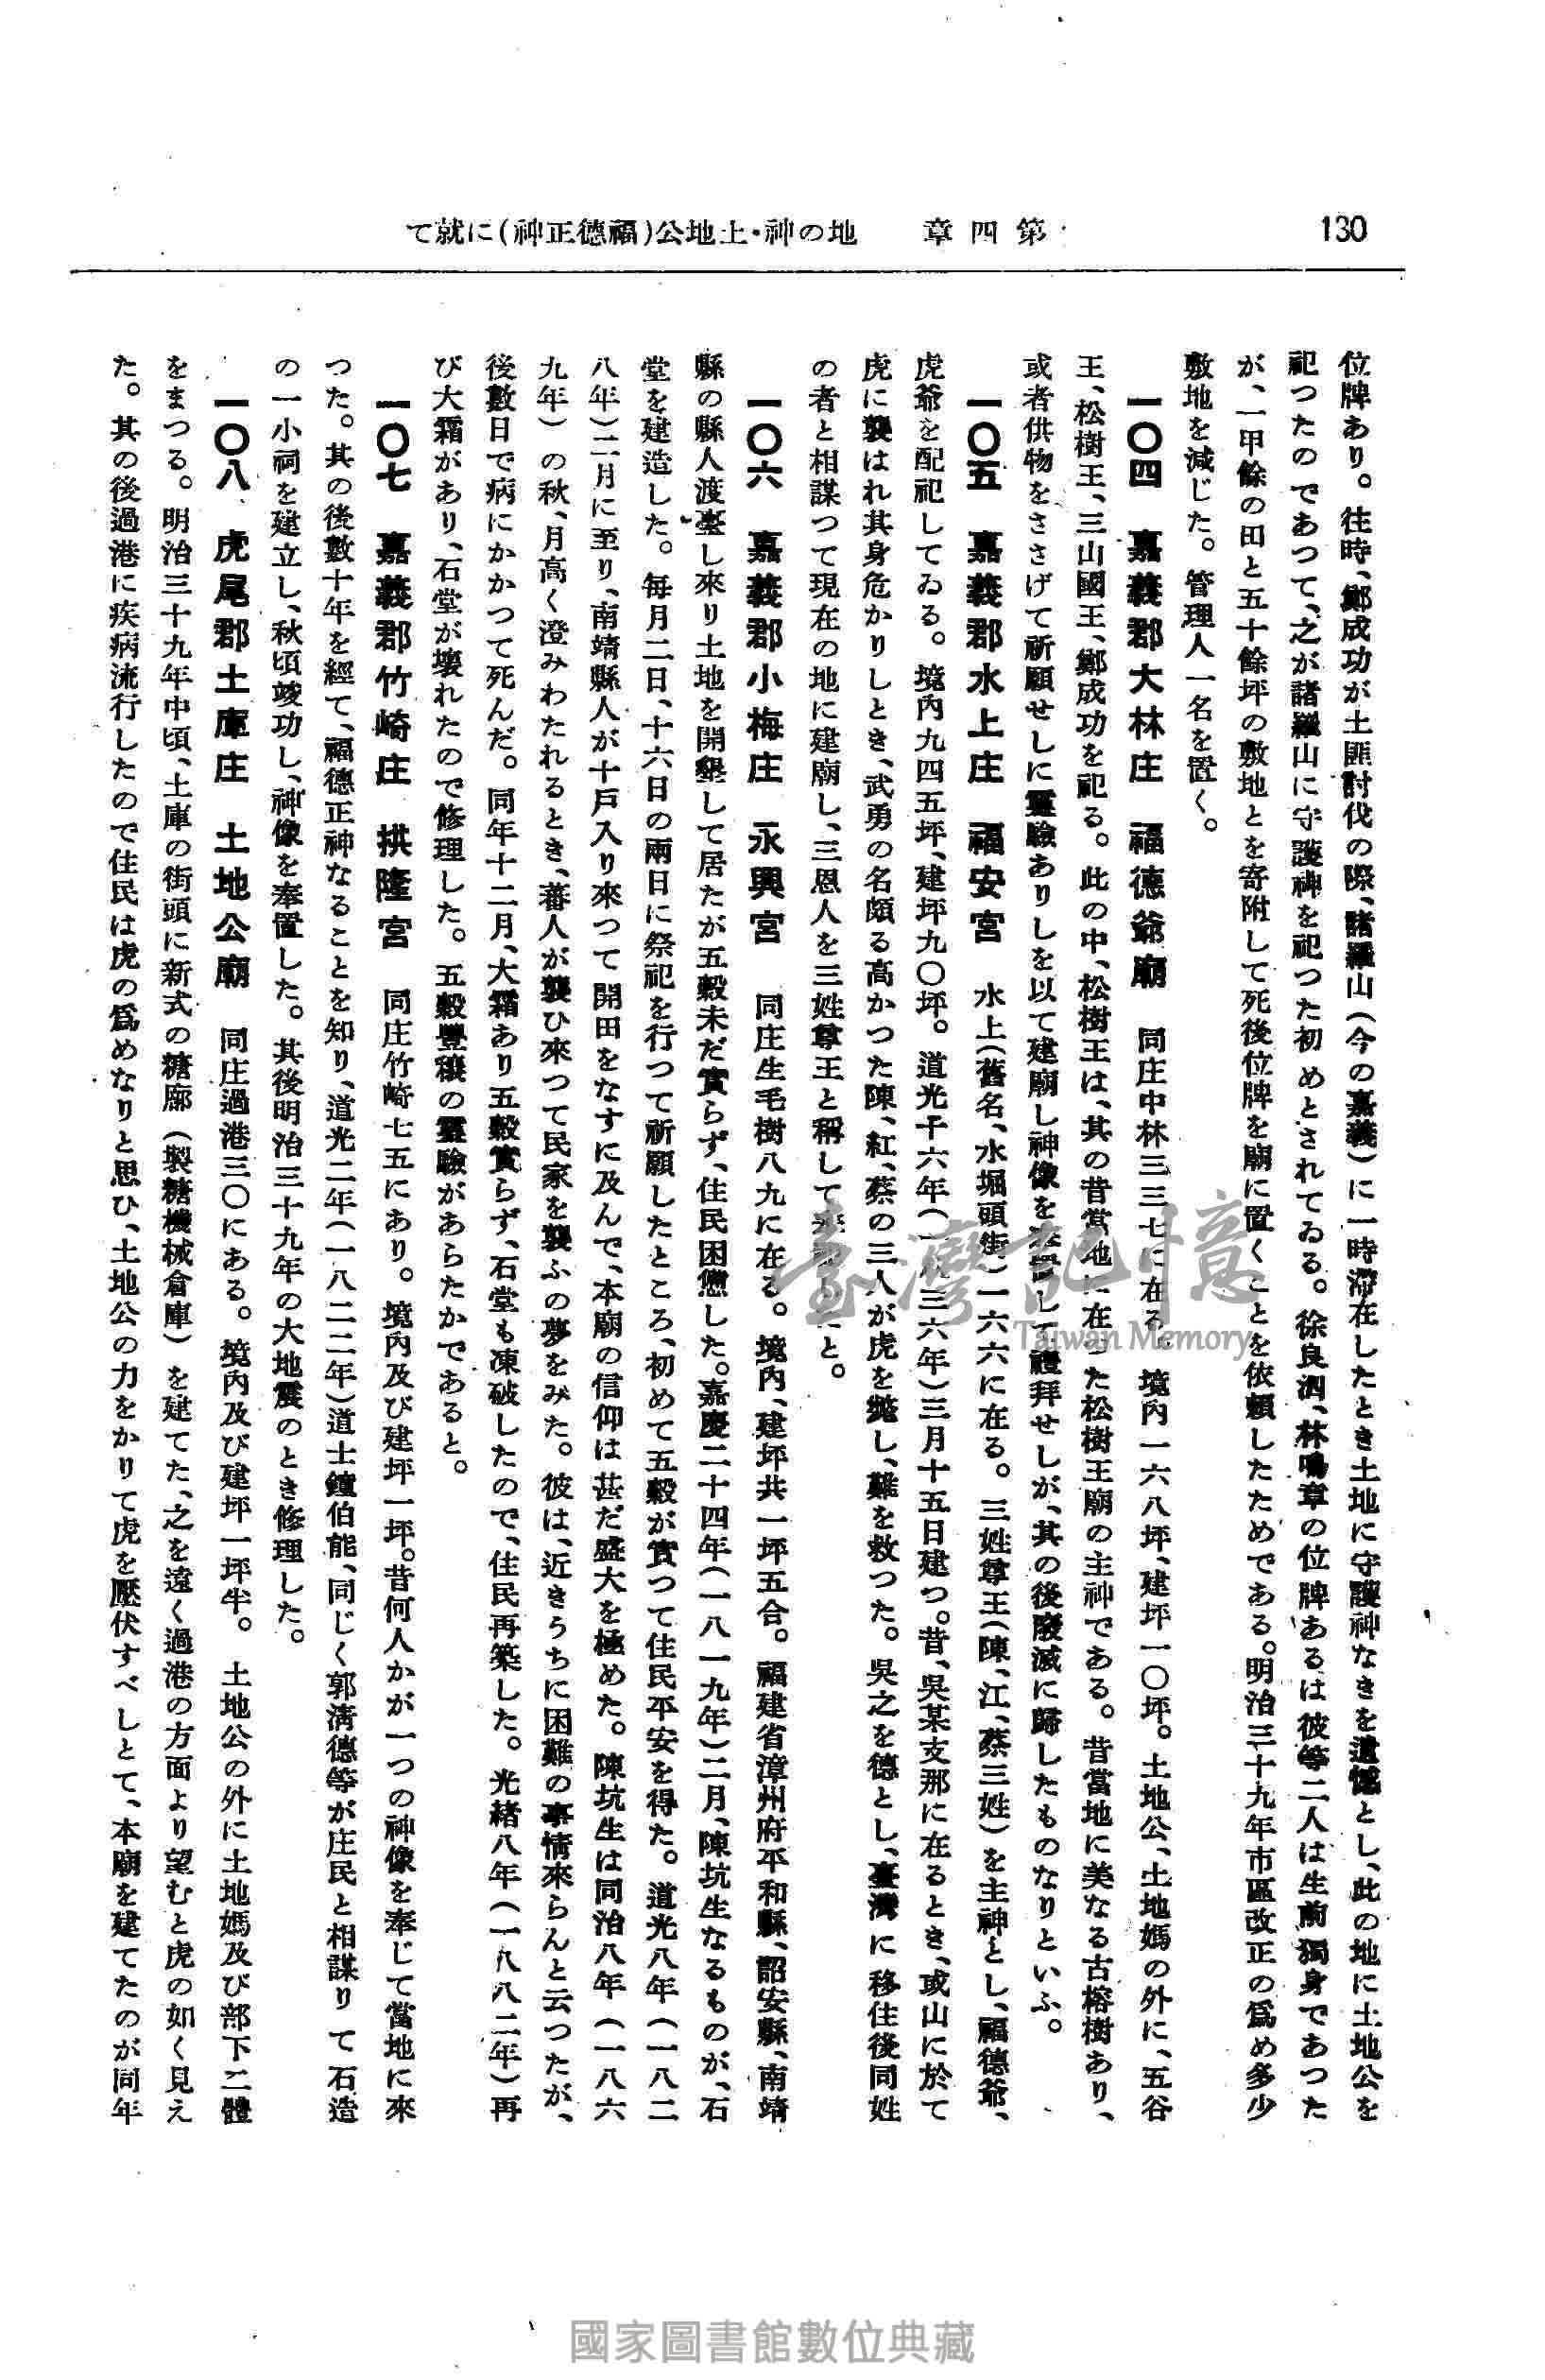 130
第四章　地の神・土地公(福德正神)に就て
位牌あり。往時、鄭成功が土匪討伐の際、諸羅山(今の嘉義)に一時滯在したとき土地に守護神なきを遺憾とし、此の地に土地公を
祀つたのであつて、之が諸羅山に守護神を祀つた初めとされてゐる。徐良泗、林鳴章の位牌あるは彼等二人は生前獨身であつた
が、一甲餘の田と五十餘坪の敷地とを寄附して死後位牌を廟に置くことを依賴したためである。明治三十九年市區改正の爲め多少
敷地を減じた。管理人一名を置く。
一〇四　嘉義郡大林庄　福德爺廟　同庄中林三三七に在る。境內一六八坪、建坪一〇坪。土地公、土地媽の外に、五谷
王、松樹王、三山國王、鄭成功を祀る。此の中、松樹王は、其の昔當地に在つた松樹王廟の主神である。昔當地に美なる古榕樹あり、
或者供物をささげて祈願せしに靈驗ありしを以て建廟し神像を して禮拜せしが、其の後廢滅に歸したものなりといふ。
一〇五　嘉義郡水上庄　福安宮　水上(舊名、水堀頭街)一六六に在る。三姓尊王(陳、江、蔡三姓)を主神とし、福德爺、
虎爺を配祀してゐる。境內九四五坪、建坪九〇坪。道光十六年(一八三六年)三月十五日建つ。昔、吳某支那に在るとき、或山に於て
虎に襲はれ其身危かりしとき、武勇の名頗る高かつた陳、紅、蔡の三人が虎を斃し、難を救つた。吳之を德とし、臺灣に移住後同姓
の者と相謀つて現在の地に建廟し、三恩人を三姓尊王と稱して と。
一〇六　嘉義郡小梅庄　永興宮　同庄生毛樹八九に在る。境內、建坪共一坪五合。福建省漳州府平和縣、詔安縣、南靖
縣の縣人渡臺し來り土地を開墾して居たが五穀未だ實らず、住民困憊した。嘉慶二十四年(一八一九年)二月、陳坑生なるものが、石
堂を建造した。每月二日、十六日の兩日に祭祀を行つて祈願したところ、初めて五穀が實つて住民平安を得た。道光八年(一八二
八年)二月に至り、南靖縣人が十戶入り來つて開田をなすに及んで、本廟の信仰は甚だ盛大を極めた。陳坑生は同治八年(一八六
九年)の秋、月高く澄みわたれるとき、蕃人が襲ひ來つて民家を襲ふの夢をみた。彼は、近きうちに困難の事情來らんと云つたが、
後數日で病にかかつて死んだ。同年十二月、大霜あり五穀實らず、石堂も凍破したので、住民再築した。光緖八年(一八八二年)再
び大霜があり、石堂が壞れたので修理した。五穀豐穰の靈驗があらたかであると。
一〇七　嘉義郡竹崎庄　拱隆宮　同庄竹崎七五にあり。境內及び建坪一坪。昔何人かが一つの神像を奉じて當地に來
つた。其の後數十年を經て、福德正神なることを知り、道光二年(一八二二年)道士鐘伯能、同じく郭淸德等が庄民と相謀りて石造
の一小祠を建立し、秋頃竣功し、神像を奉置した。其後明治三十九年の大地震のとき修理した。
一〇八、虎尾郡土庫庄　土地公廟　同庄過港三〇にある。境內及び建坪一坪半。土地公の外に土地媽及び部下二體
をまつる。明治三十九年中頃、土庫の街頭に新式の糖廍(製糖機械倉庫)を建てた、之を遠く過港の方面より望むと虎の如く見え
た。其の後過港に疾病流行したので住民は虎の爲めなりと思ひ、土地公の力をかりて虎を壓伏すべしとて、本廟を建てたのが同年
臺灣記憶
Taiwan Memory
國家圖書館數位典藏